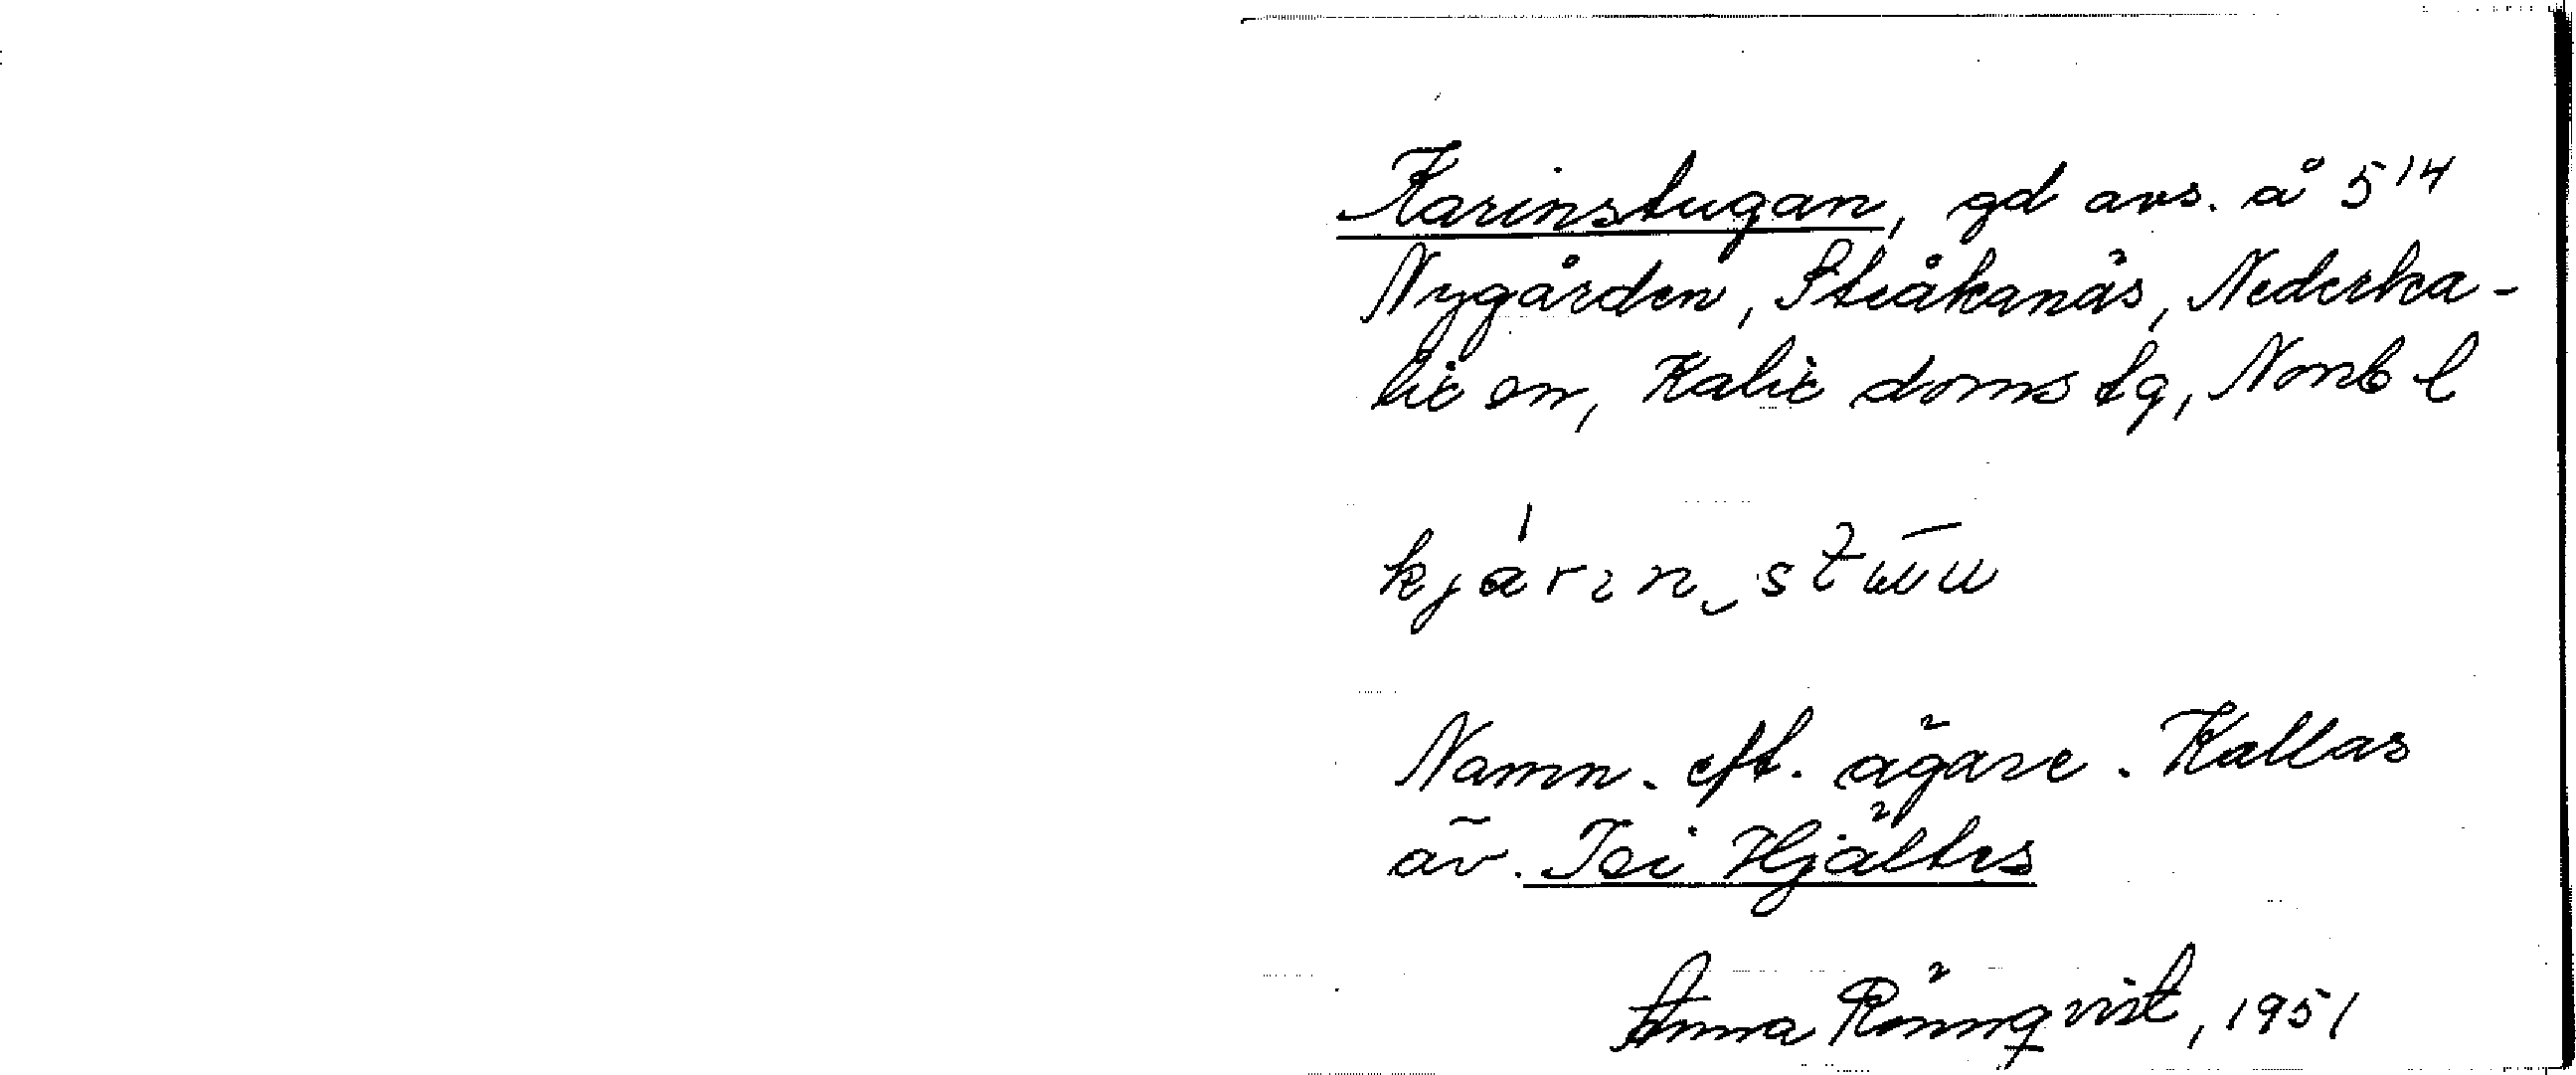 Karinstugan, gd avs. å 5¹⁴
Nygården, Stråkanäs, Nederka-
lix sn, Kalix doms tg, Norrb l
kjárin‿stūu
Namn. eft. ägare. Kallas
äv. Isi Hjälters
Anna Rönnqvist, 1951